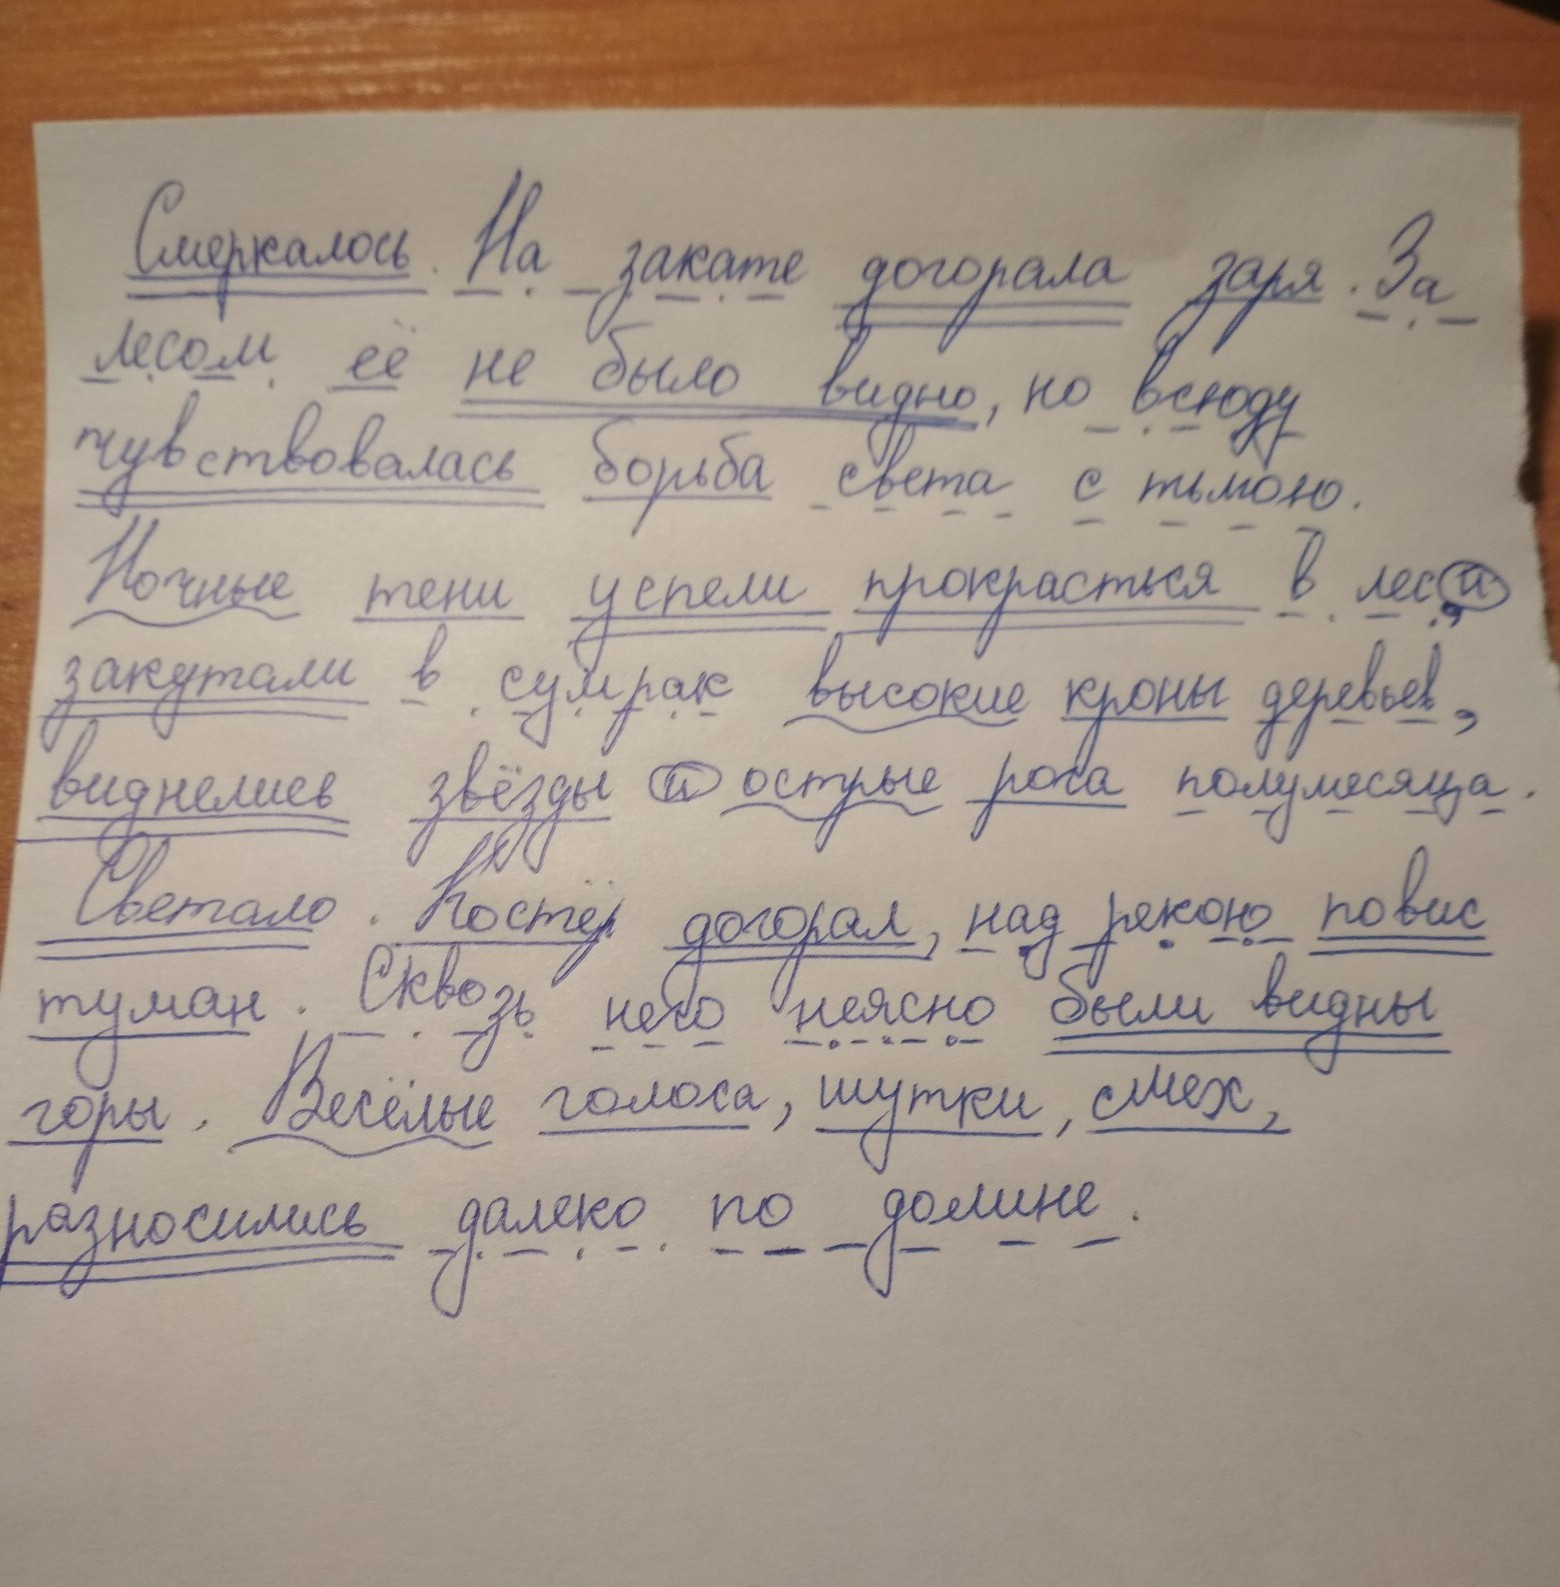 Смеркалось. На закате догорала заря. За
лесом её не было видно, но всюду
чувствовалась борьба света с тьмою.
Ночные тени успели прокрасться в лес, и
закутали в сумрак высокие кроны деревьев,
виднелись звёзды и острые рога полумесяца.
Светало. Костёр догорал, над рекою повис
туман. Сквозь него неясно были видны
горы. Весёлые голоса, шутки, смех,
разносились далеко по долине.